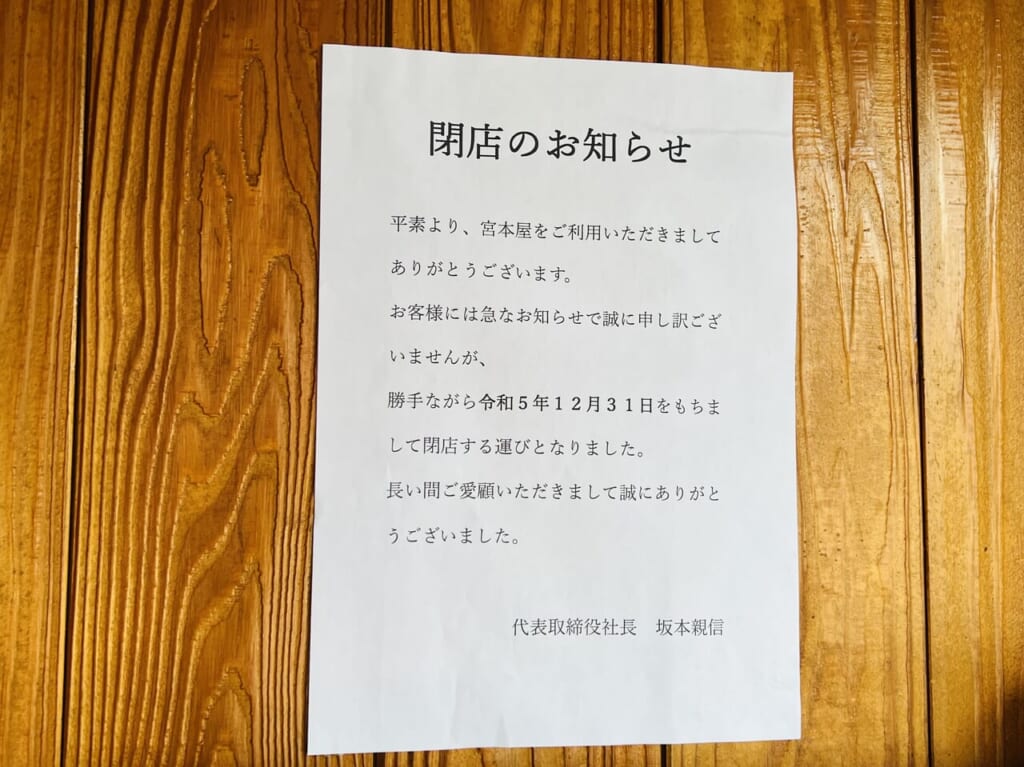 閉店のお知らせ
平素より、宮本屋をご利用いただきまして
ありがとうございます。
お客様には急なお知らせで誠に申し訳ござ
いませんが、
勝手ながら令和５年１２月３１日をもちま
して閉店する運びとなりました。
長い間ご愛顧いただきまして誠にありがと
うございました。
代表取締役社長　坂本親信